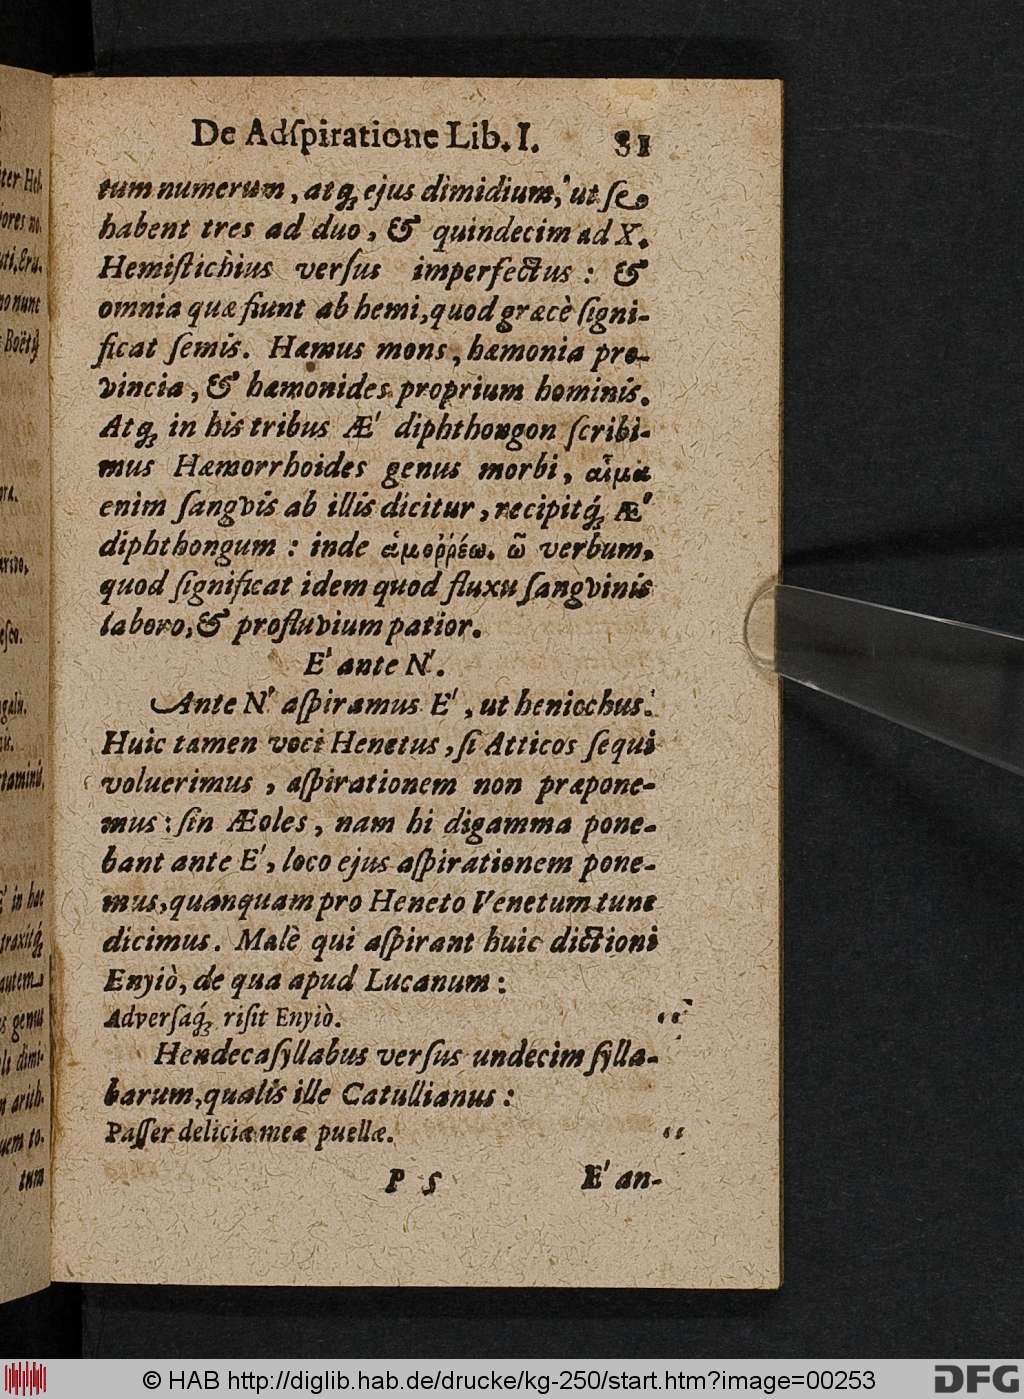 De Adſpiratione Lib. I. 81
tum numerum, atq́; ejus dimidium, ut ſe
habent tres ad duo, & quindecim ad X.
Hemiſtichius verſus imperfectus: &
omnia quæ fiunt ab hemi, quod græcè ſigni-
ficat ſemis. Hæmus mons, hæmonia pro-
vincia, & hæmonides proprium hominis.
Atq́; in his tribus Æ' diphthongon ſcribi-
mus Hæmorrhoides genus morbi, αἷμα
enim ſangvis ab illis dicitur, recipitq́; Æ'
diphthongum: inde ἁμοῤῥέω. ῶ verbum,
quod ſignificat idem quod fluxu ſangvinis
laboro, & profluvium patior.
E' ante N'.
Ante N' aſpiramus E', ut heniochus.
Huic tamen voci Henetus, ſi Atticos ſequi
voluerimus, aſpirationem non præpone-
mus: ſin Æoles, nam hi digamma pone-
bant ante E', loco ejus aſpirationem pone-
mus, quanquam pro Heneto Venetum tunc
dicimus. Malè qui aſpirant huic dictioni
Enyiò, de qua apud Lucanum:
Adverſaq́; riſit Enyiò. “
Hendecaſyllabus verſus undecim ſylla-
barum, qualis ille Catullianus:
Paſſer deliciæ meæ puellæ. “
P 5 E' an-
iter
iores no.
uti, Eru.
no nunc
Boëtÿ
taminis,
E' in hac
traxitq́;
autem
genus
dimi-
arith-
uem to-
tum
© HAB http://diglib.hab.de/drucke/kg-250/start.htm?image=00253
DFG